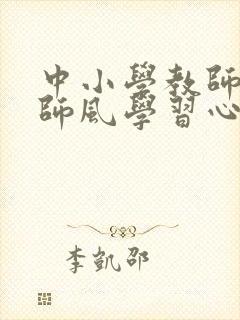 中小學教師
師風學習心
李凱邵